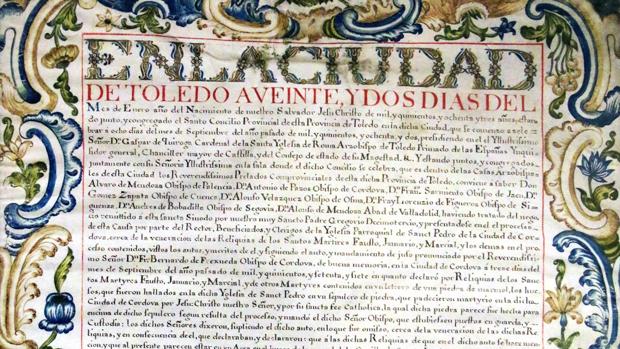 EN LA CIUDAD
DE TOLEDO A VEINTE, Y DOS DIAS DEL
Mes de Enero año del Nacimiento de nuestro Salvador Jesu Christo de mil, y quinientos, y ochenta y tres años, estan
do junto, y congregado el Santo Concilio Provincial de esta Provincia de Toledo en la dicha Ciudad, que se comenzo a cele
brar à ocho dias del mes de Septiembre del año pasado de mil, y quinientos, y ochenta, y dos, presidiendo en el Yllustrissimo
Señor Dn. Gaspar de Quiroga Cardenal de la Santa Yglesia de Roma Arzobispo de Toledo Primado de las Españas Ynqui
sidor general, Chanciller mayor de Castilla, y del Consejo de estado de su Magestad. Yestando juntos, y congregados
juntamente con su Señoria Yllustrissima en la sala donde el dicho Concilio se celebra, que es dentro de las Casas Arzobispa
les de esta Ciudad los Reverendissimos Prelados Comprovinciales de esta dicha Provincia de Toledo, conviene a saber Don
Alvaro de Mendoza Obispo de Palencia, Dn. Antonio de Pazos Obispo de Cordova, Dn. Franco. Sarmiento Obispo de Jaen, Dn.
Gomez Zapata Obispo de Cuenca, Dn. Alonso Velazquez Obispo de Osma, Dn. Fray Lorenzo de Figueroa Obispo de Si
guenza, Dn. Andres de Bobadilla Obispo de Segovia, Dn. Alonso de Mendoza Abad de Valladolid, haviendo tratado del nego
cio remitido à esta sancta Sinodo por nuestro muy Sancto Padre Gregorio Decimotercio, y presentadose en el el proceso
de esta Causa por parte del Rector, Beneficiados, y Clerigos de la Yglesia Parroquial de Sanct Pedro de la Ciudad de Cor
dova, cerca de la veneracion de las Reliquias de los Santos Martires Fausto, Januario, y Marcial, y los demas en el pro
cesso contenidos, vistos los autos, y meritos de el, y siguiendo el auto, y mandamiento de juso pronunciado por el Reverendissi
mo Señor Dn. Fr. Bernardo de Fresneda Obispo de Cordova, de buena memoria, en la Ciudad de Cordova à trese dias del
mes de Septiembre del año pasado de mil, y quinientos, y setenta, y siete en quanto declarò por Reliquias de los Sanc
tos Martyres Fausto, Januario, y Marcial, y de otros Martyres contenidos en un letrero de una piedra de marmol, los hue
sos, que fueron hallados en la dicha Yglesia de Sanct Pedro en un sepulcro de piedra, que padecieron martyrio en la dicha
Ciudad de Cordova por Jesu Christo nuestro Señor, y por su sancta fee Catholica, la qual dicha piedra parece se hacia para
encima de dicho sepulcro segun resulta del proceso, y mandò el dicho Obispo que estubiesen puestos en guarda, y
Custodia: los dichos Señores dixeron, supliendo el dicho auto, en lo que fue omiso, cerca de la veneracion de las dichas Re
liquias, y en consecuencia de el, que declaraban, y declararon: que à las dichas Reliquias desde que en el dicho auto se hace men